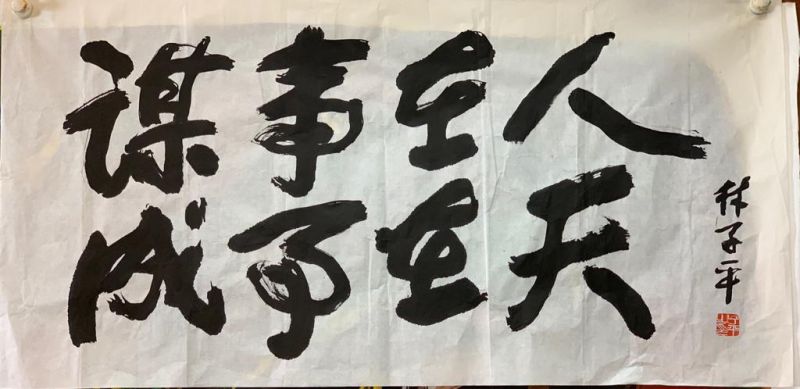 谋事在人
成事在天
林子平